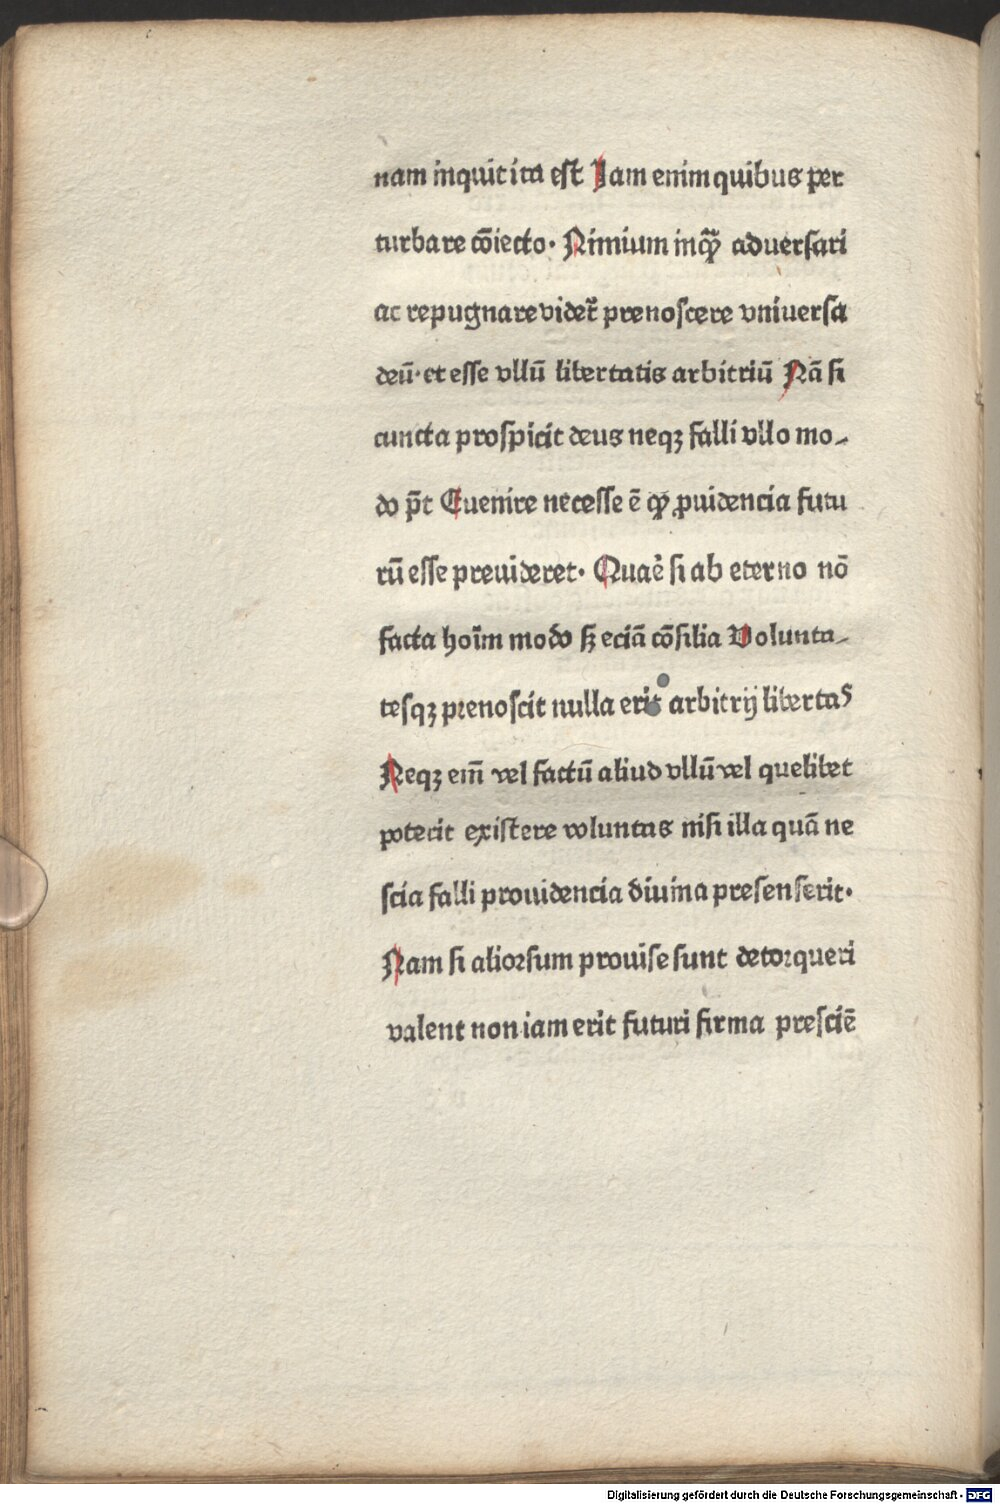 nam inquit ita est Jam enim quibus per
turbare cōiecto· Nimium inqꝫ aduersari
ac repugnare videt᷑ prenoscere vniuersa
deū· et esse vllū libertatis arbitriū Nā si
cuncta prospicit deus neqꝫ falli vllo mo-
do p̄t Euenire necesse ē qꝫ ꝓuidencia futu
rū esse preuideret· Quaē si ab eterno nō
facta hoīm modo sꝫ eciā cōsilia Volunta-
tesqꝫ prenoscit nulla erit arbitrij libertas
Neqꝫ em̄ vel factū aliud vllū vel quelibet
poterit existere voluntas nisi illa quā ne
scia falli prouidencia diuina presenserit·
Nam si aliorsum prouise sunt detorqueri
valent non iam erit futuri firma presciē
Digitalisierung gefördert durch die Deutsche Forschungsgemeinschaft - DFG